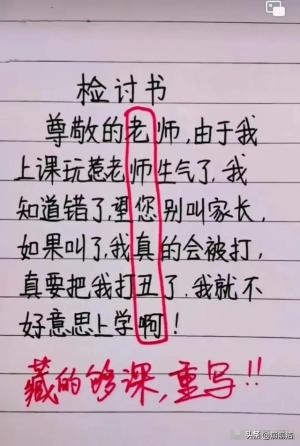 检讨书
尊敬的老师,由于我
上课玩惹老师生气了,我
知道错了,望您别叫家长,
如果叫了,我真的会被打,
真要把我打丑了.我就不
好意思上学啊!
藏的够深,重写!!
头条 @